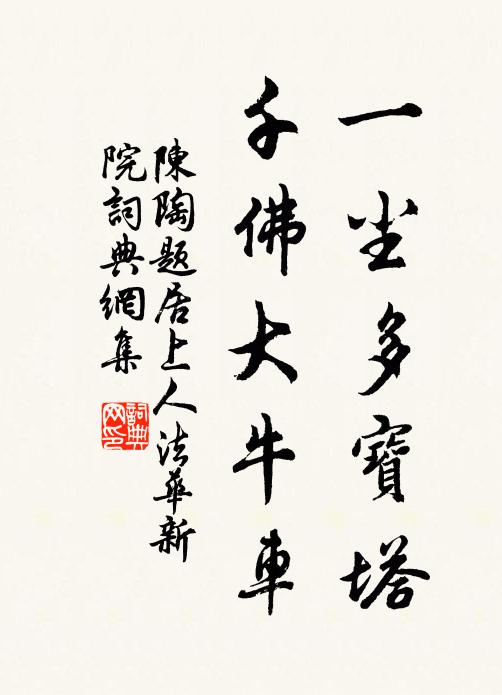 一尘多寶塔
千佛大牛車
陳陶題居上人法華新
院詞典網集
詞典
网印